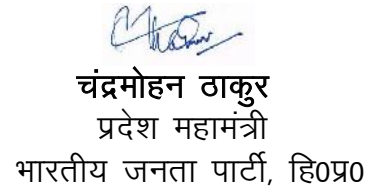 चंद्रमोहन ठाकुर
प्रदेश महामंत्री
भारतीय जनता पार्टी, हि0प्र0